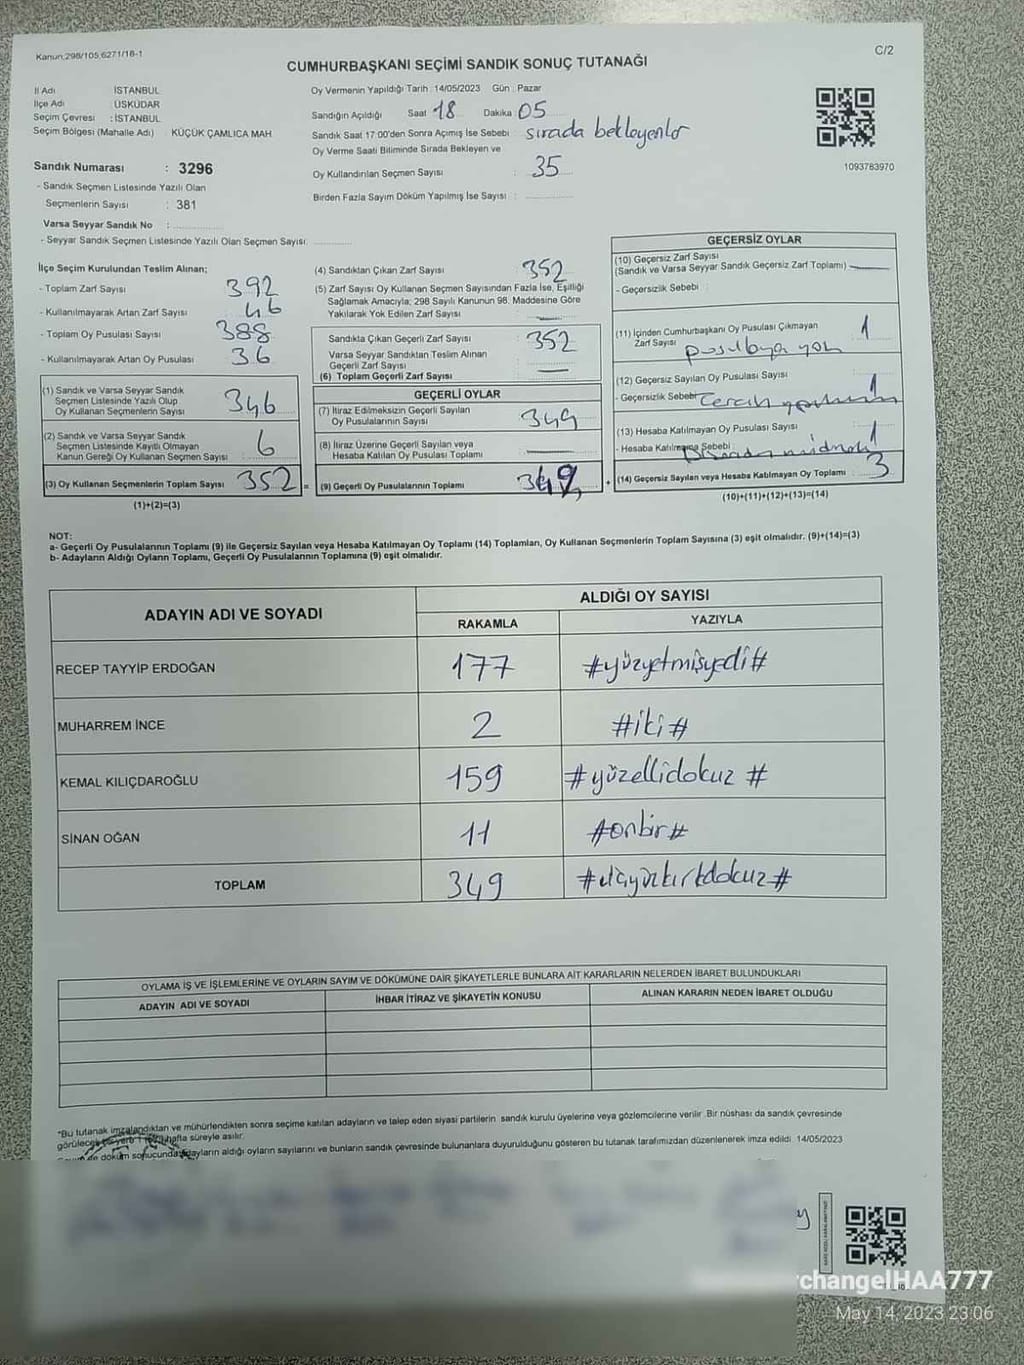 Kanun;298/105,6271/18-1
C/2
CUMHURBAŞKANI SEÇİMİ SANDIK SONUÇ TUTANAĞI
İl Adı İSTANBUL
İlçe Adı : ÜSKÜDAR
Seçim Çevresi : İSTANBUL
Seçim Bölgesi (Mahalle Adı) KÜÇÜK ÇAMLICA MAH.
Sandık Numarası : 3296
- Sandık Seçmen Listesinde Yazılı Olan
Seçmenlerin Sayısı : 381
Varsa Seyyar Sandık No :
- Seyyar Sandık Seçmen Listesinde Yazılı Olan Seçmen Sayısı.
Oy Vermenin Yapıldığı Tarih : 14/05/2023 Gün : Pazar
Sandığın Açıldığı Saat 18 Dakika 05
Sandık Saat 17:00'den Sonra Açımış İse Sebebi : sırada bekleyenler
Oy Verme Saati Bitiminde Sırada Bekleyen ve
Oy Kullandırılan Seçmen Sayısı : 35
Birden Fazla Sayım Döküm Yapılmış İse Sayısı :
1093783970
İlçe Seçim Kurulundan Teslim Alınan;
- Toplam Zarf Sayısı 392
- Kullanılmayarak Artan Zarf Sayısı 46
- Toplam Oy Pusulası Sayısı 388
- Kullanılmayarak Artan Oy Pusulası 36
(1) Sandık ve Varsa Seyyar Sandık
Seçmen Listesinde Yazılı Olup
Oy Kullanan Seçmenlerin Sayısı 346
(2) Sandık ve Varsa Seyyar Sandık
Seçmen Listesinde Kayıtlı Olmayan
Kanun Gereği Oy Kullanan Seçmen Sayısı : 6
(3) Oy Kullanan Seçmenlerin Toplam Sayısı 352 =
(1)+(2)=(3)
(4) Sandıktan Çıkan Zarf Sayısı 352
(5) Zarf Sayısı Oy Kullanan Seçmen Sayısından Fazla İse, Eşitliği
Sağlamak Amacıyla; 298 Sayılı Kanunun 98. Maddesine Göre
Yakılarak Yok Edilen Zarf Sayısı :
Sandıkta Çıkan Geçerli Zarf Sayısı : 352
Varsa Seyyar Sandıktan Teslim Alınan
Geçerli Zarf Sayısı :
(6) Toplam Geçerli Zarf Sayısı
GEÇERLİ OYLAR
(7) İtiraz Edilmeksizin Geçerli Sayılan
Oy Pusulalarının Sayısı 349
(8) İtiraz Üzerine Geçerli Sayılan veya
Hesaba Katılan Oy Pusulası Toplamı
(9) Geçerli Oy Pusulalarının Toplamı 349 +
GEÇERSİZ OYLAR
(10) Geçersiz Zarf Sayısı
(Sandık ve Varsa Seyyar Sandık Geçersiz Zarf Toplamı)
- Geçersizlik Sebebi :
(11) İçinden Cumhurbaşkanı Oy Pusulası Çıkmayan
Zarf Sayısı 1
(12) Geçersiz Sayılan Oy Pusulası Sayısı 1
- Geçersizlik Sebebi
(13) Hesaba Katılmayan Oy Pusulası Sayısı : 1
- Hesaba Katılmama Sebebi :
(14) Geçersiz Sayılan veya Hesaba Katılmayan Oy Toplamı : 3
(10)+(11)+(12)+(13)=(14)
NOT:
a- Geçerli Oy Pusulalarının Toplamı (9) ile Geçersiz Sayılan veya Hesaba Katılmayan Oy Toplamı (14) Toplamları, Oy Kullanan Seçmenlerin Toplam Sayısına (3) eşit olmalıdır. (9)+(14)=(3)
b- Adayların Aldığı Oyların Toplamı, Geçerli Oy Pusulalarının Toplamına (9) eşit olmalıdır.
ADAYIN ADI VE SOYADI
ALDIĞI OY SAYISI
RAKAMLA YAZIYLA
RECEP TAYYİP ERDOĞAN 177 #yüzyetmişyedi#
MUHARREM İNCE 2 #iki#
KEMAL KILIÇDAROĞLU 159 #yüzellidokuz #
SİNAN OĞAN 11 #onbir#
TOPLAM 349 #üçyüzkırkdokuz#
OYLAMA İŞ VE İŞLEMLERİNE VE OYLARIN SAYIM VE DÖKÜMÜNE DAİR ŞİKAYETLERLE BUNLARA AİT KARARLARIN NELERDEN İBARET BULUNDUKLARI
ADAYIN ADI VE SOYADI İHBAR İTİRAZ VE ŞİKAYETİN KONUSU ALINAN KARARIN NEDEN İBARET OLDUĞU
*Bu tutanak imzalandıktan ve mühürlendikten sonra seçime katılan adayların ve talep eden siyasi partilerin sandık kurulu üyelerine veya gözlemcilerine verilir. Bir nüshası da sandık çevresinde
görülecek bir yere 1 hafta süreyle asılır.
döküm sonucunda adayların aldığı oyların sayılarını ve bunların sandık çevresinde bulunanlara duyurulduğunu gösteren bu tutanak tarafımızdan düzenlenerek imza edildi. 14/05/2023
changelHAA777
May 14, 2023 23:06